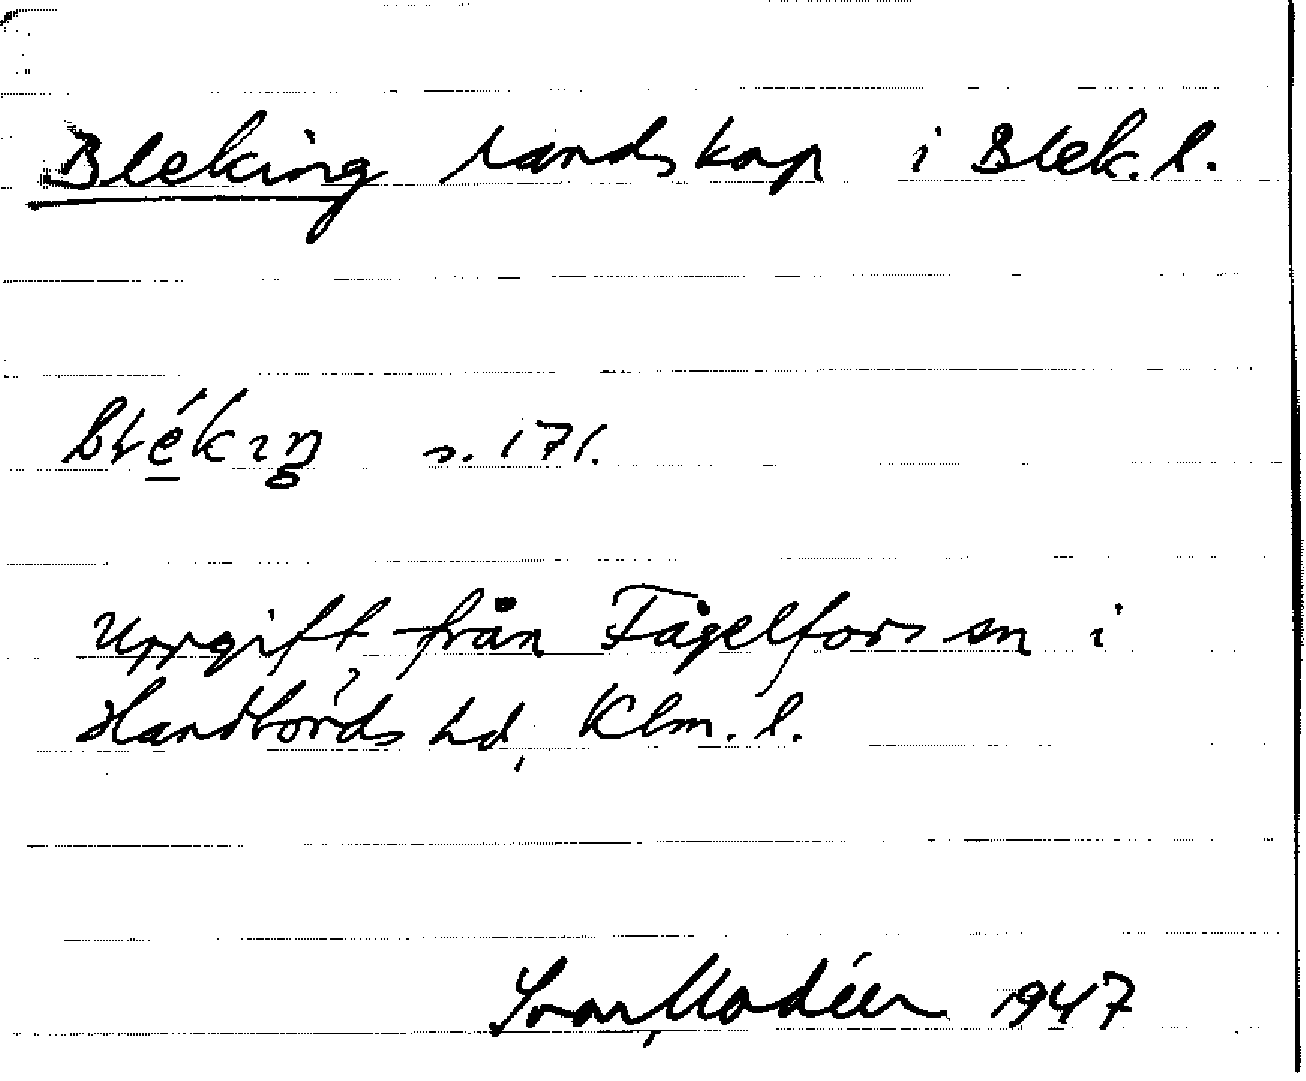 Bleking landskap i Blek. l.
blékıŋ s. 171.
Uppgift från Fågelfors sn i
Handbörds hd, Klm. l.
Ivar Modéer 1947